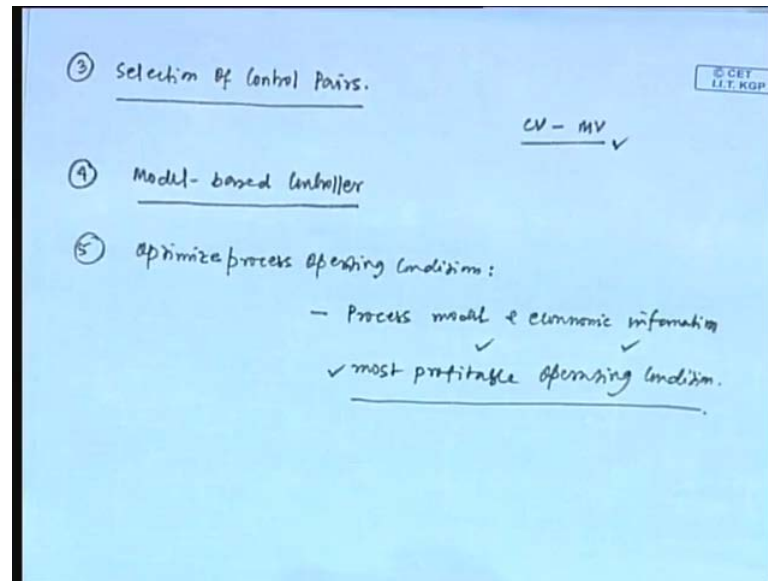 ③ Selection of Control Pairs.
© CET
I.I.T. KGP
CV - MV ✓
④ Model-based Controller
⑤ Optimize process operating Conditions:
- Process model & economic information
✓ ✓
✓ most profitable operating condition.